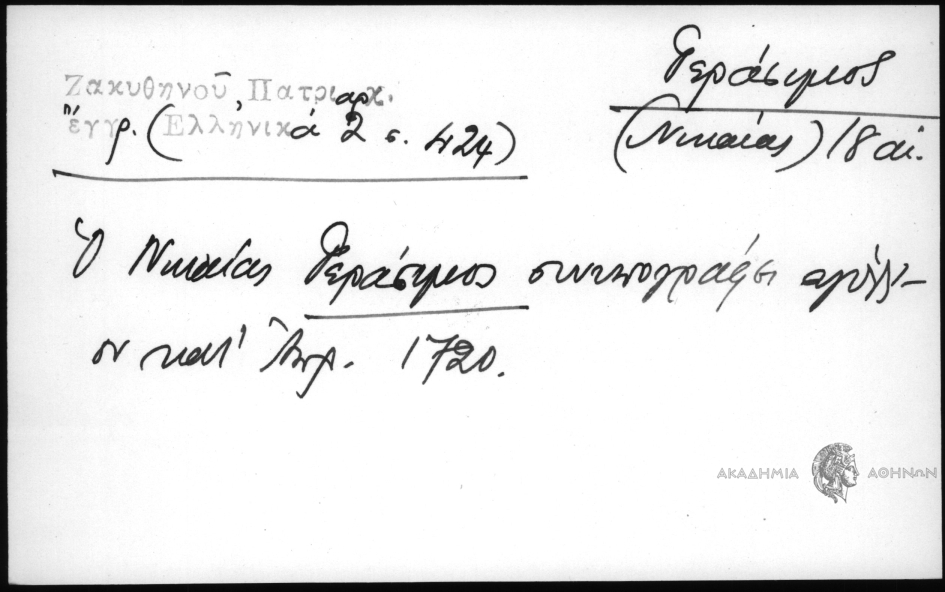 Ζακυθηνοῦ, Πατριαρχ.
ἔγγρ. (Ἑλληνικά 2 σ. 424)
Γεράσιμος
(Νικαίας) 18 αἰ.
Ὁ Νικαίας Γεράσιμος συνυπογράφει
κατ' Ἀπρ. 1720.
ΑΚΑΔΗΜΙΑ ΑΘΗΝΩΝ